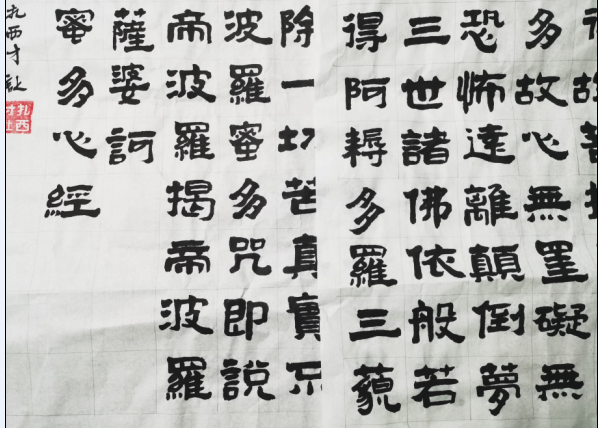 多故心無罣礙無
恐怖遠離顛倒夢
三世諸佛依般若
得阿耨多羅三藐
除一切苦真實不
波羅蜜多咒即說
帝波羅揭帝波羅
薩婆訶
蜜多心經
扎西才让
扎西才让